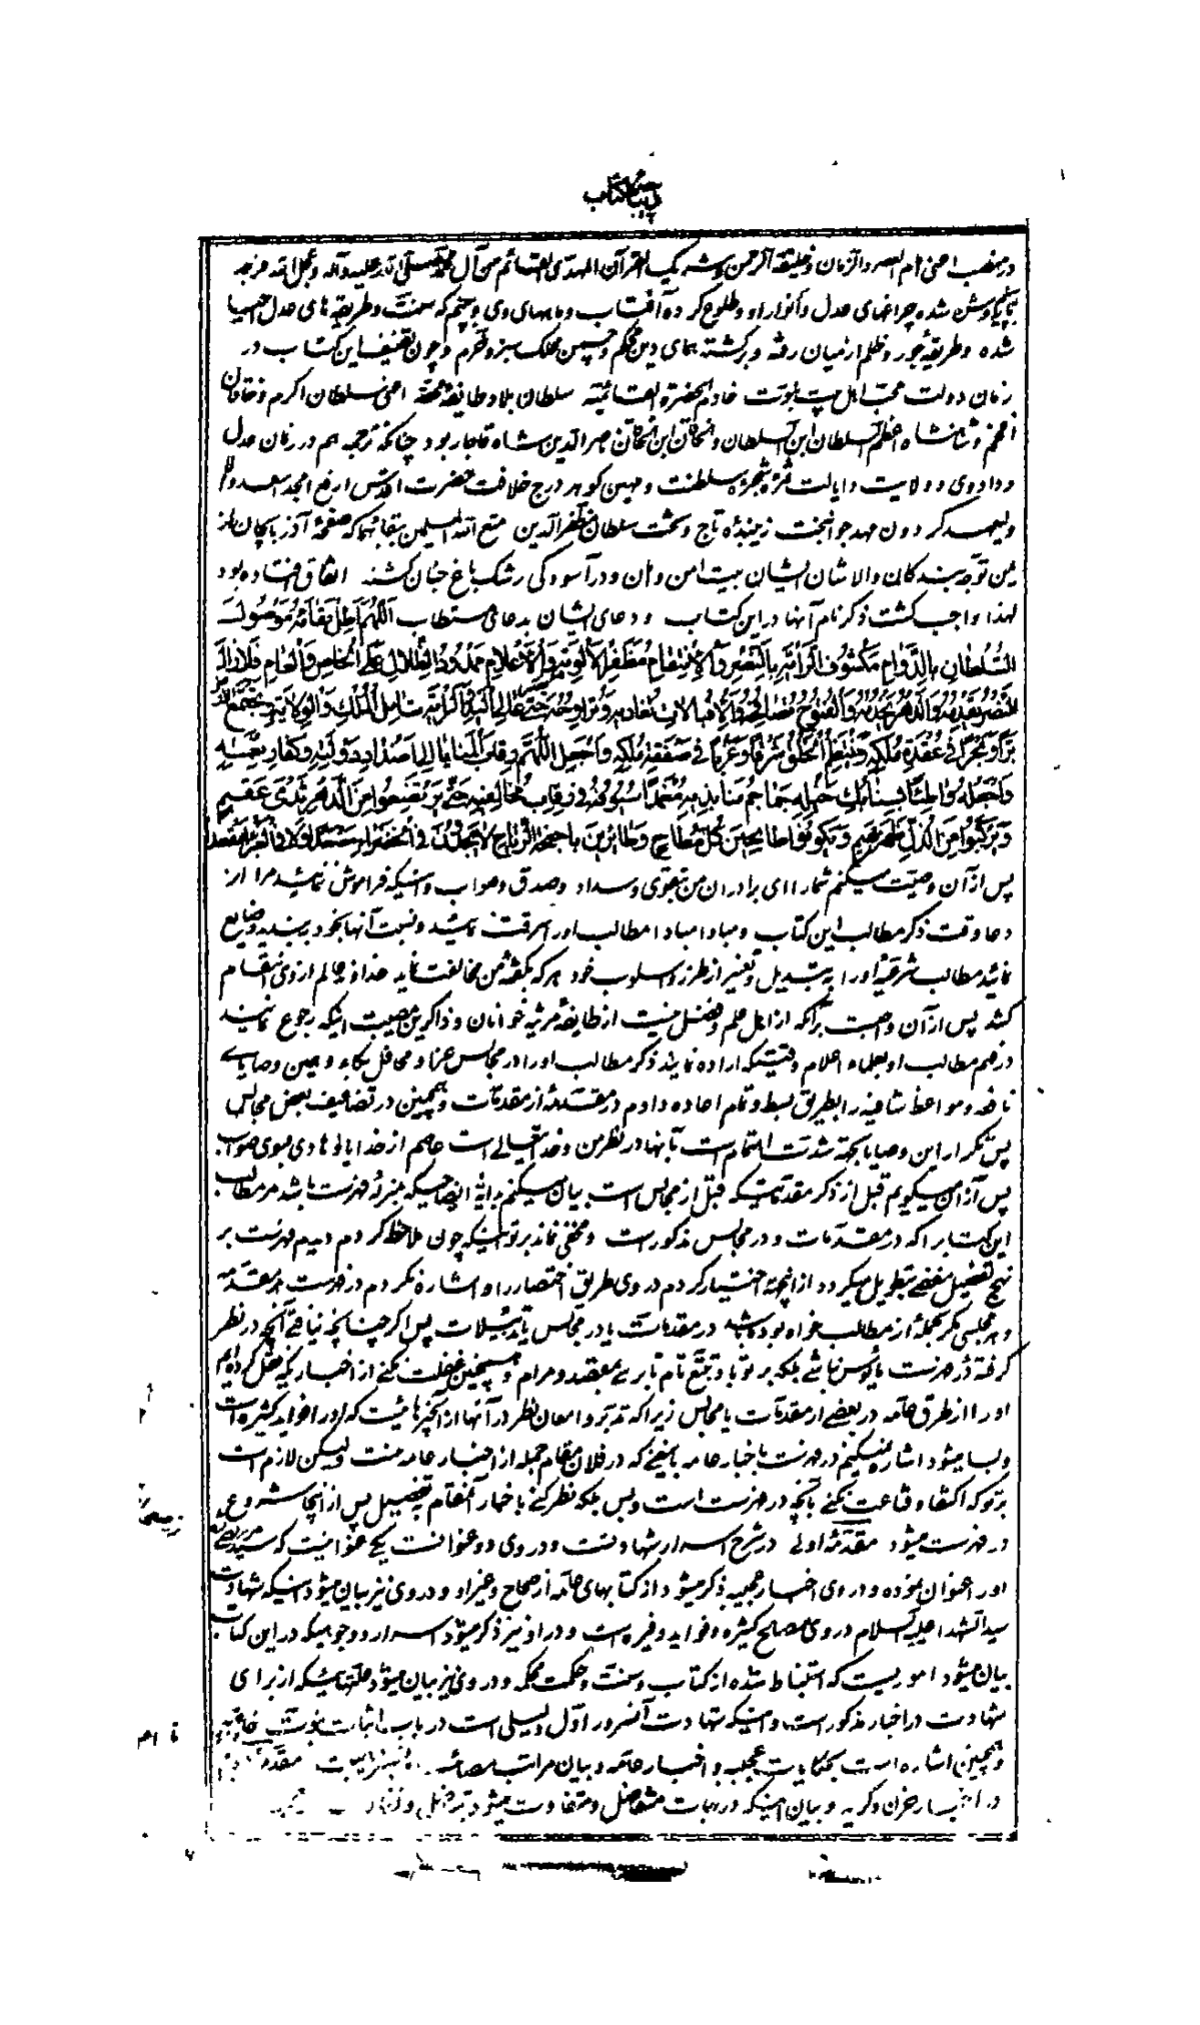 دیباچه کتاب
در منصب اعنی امام العصر والزمان و خلیفة الرحمن و شریک القرآن المهدی القائم من آل محمد صلی الله علیه و آله و عجل الله فرجه
روشن شده چراغهای عدل و انوار او و طلوع کرده آفتاب و ماههای وی و که سنت و طریقه های عدل احیا
شده و طریقهٔ جور و ظلم از میان رفته و برگشته بنای دین محکم و چمن ملک سبز و خرم و چون تصنیف این کتاب در
زمان دولت محب اهل بیت نبوت خادم الحضرة القائمیة سلطان بلاد طایفهٔ محقه اعنی سلطان اکرم و خاقان
افخم و شاهنشاه اعظم السلطان ابن السلطان و الخاقان ابن الخاقان ناصر الدین شاه قاجار بود چنانکه ترجمه هم در زمان عدل
و دادوی و ولایت و ایالت ثمرهٔ شجرهٔ سلطنت و مهین گوهر درج خلافت حضرت اقدس ارفع امجد اسعد والا
ولیعهد گردون مهد جوانبخت زیبندهٔ تاج و تخت سلطان مظفر الدین متع الله المسلمین ببقائهما که صفحهٔ آذربایجان از
یمن توجه بندگان والا شان ایشان بیت امن و امان و در آسودگی رشک باغ جنان گشته اتفاق افتاده بود
لهذا واجب گشت ذکر نام آنها در این کتاب و دعای ایشان بدعای مستطاب اللهم اطل بقائه موصول
السلطان بالدوام مکشوف الرایة بالنصر والانتقام مظفر الالویة والاعلام ممدود الظلال علی الخاص والعام فلا زال
النصر یقدمه والدهر یخدمه والفتوح تصافحه والاقبالات تغادیه وتراوحه حتی الملک والولایة
برا و بحرا فی عقدة ملکه وینتظم الخلق شرقا وغربا فی صفقة ملکه واجعل اللهم رقاب دولته وکفار نعمته
واجعله سنابک خیله جماجم منابذیه مغمدا سیوفه فی رقاب مخالفیه حتی یرتضعوا من الدهر ثدی عقیم
ویرکبوا من الذل ظهر ویکونوا طائحین کل مطاح وطائرین باجنحة الریاح لا یجدون فی الخضراء مسعدا ولا فی الغبراء مقعدا
پس از آن وصیت میکنم شما را ای برادران من بتقوی و سداد و صدق و صواب و اینکه فراموش ننمائید مرا از
دعا وقت ذکر مطالب این کتاب و مبادا مبادا مطالب اورا سرقت نمائید و نسبت آنها بخود بدهید و ضایع
نمائید مطالب شرعیهٔ اورا به تبدیل و تغییر از طرز و اسلوب خود هر که بگفتهٔ من مخالفت نماید خداوند عالم از وی انتقام
کشد پس از آن واجبست برآنکه از اهل علم و فضل نیست از طایفهٔ مرثیه خوانان و ذاکرین مصیبت اینکه رجوع نمایند
در فهم مطالب او بعلماء اعلام وقتیکه اراده نمایند ذکر مطالب اورا در مجالس عزا و محافل بکاء و همین وصایای
نافعه و مواعظ شافیه را بطریق بسط و تمام اعاده دادم در مقدمهٔ از مقدمات و همچنین در تضاعیف بعض مجالس
پس تکرار این وصایا بجهة شدت اهتمام است بآنها در نظر من و خدایتعالی است عاصم از خطایا و هادی بسوی صواب
پس از آن میگویم قبل از ذکر مقدماتیکه قبل از مجالس است بیان میکنم برایهٔ ایضاحیکه بمنزلهٔ فهرست باشد مر مطالب
این کتابرا که در مقدمات و در مجالس مذکور است و مخفی نماند بر تو اینکه چون ملاحظه کردم دیدم فهرست بر
نهج تفصیل مفضی بتطویل میگردد از اینجهة اختیار کردم در وی طریق اختصار را و اشاره نکردم در فهرست هر مقدمه
و هر مجلسی مگر بجملهٔ از مطالب خواه بوده باشد در مقدمات یا در مجالس یا تذییلات پس اگر چنانچه نیافتی آنچه در نظر
گرفتهٔ در فهرست مأیوس نباشی بلکه بر تو باد تتبع تام تا برسی بمقصد و مرام و همچنین غفلت نکنی از اخباریکه نقل کرده‌ایم
اورا از طرق عامه در بعضی از مقدمات یا مجالس زیرا که تدبر و امعان نظر در آنها از آنچیزهائیست که اورا فواید کثیره است
و بسا میشود اشاره نمیکنیم در فهرست باخبار عامه باینمعنی که در فلان مقام جمله از اخبار عامه هست ولیکن لازم است
بر تو که اکتفا و قناعت نکنی بآنچه در فهرست است و بس بلکه نظر کنی باخبار آنمقام بتفصیل پس از اینجا شروع
در فهرست میشود مقدمهٔ اولی در شرح اسرار شهادتست و در وی دو عنوانست یکی عنوانیست که سید مرتضی
اورا عنوان نموده و در وی اخبار عجیبه ذکر میشود از کتابهای عامه از صحاح و غیر او و در وی نیز بیان میشود اینکه شهادت
سید الشهداء علیه السلام در وی مصالح کثیره و فواید وفیره است و در او نیز ذکر میشود اسرار و وجوهیکه در این کتاب
بیان میشود اموریست که استنباط شده از کتاب و سنت و حکمت محکمه و در وی نیز بیان میشود علتهائیکه از برای
شهادت در اخبار مذکور است و اینکه شهادت آنسرور اول دلیلی است در باب اثبات نبوت
و همچنین اشاره است بحکایات عجیبه و اخبار عامه و بیان مراتب مصائب مقدمه
در اخبار حزن و گریه و بیان اینکه درجات متفاضل و متفاوت میشود